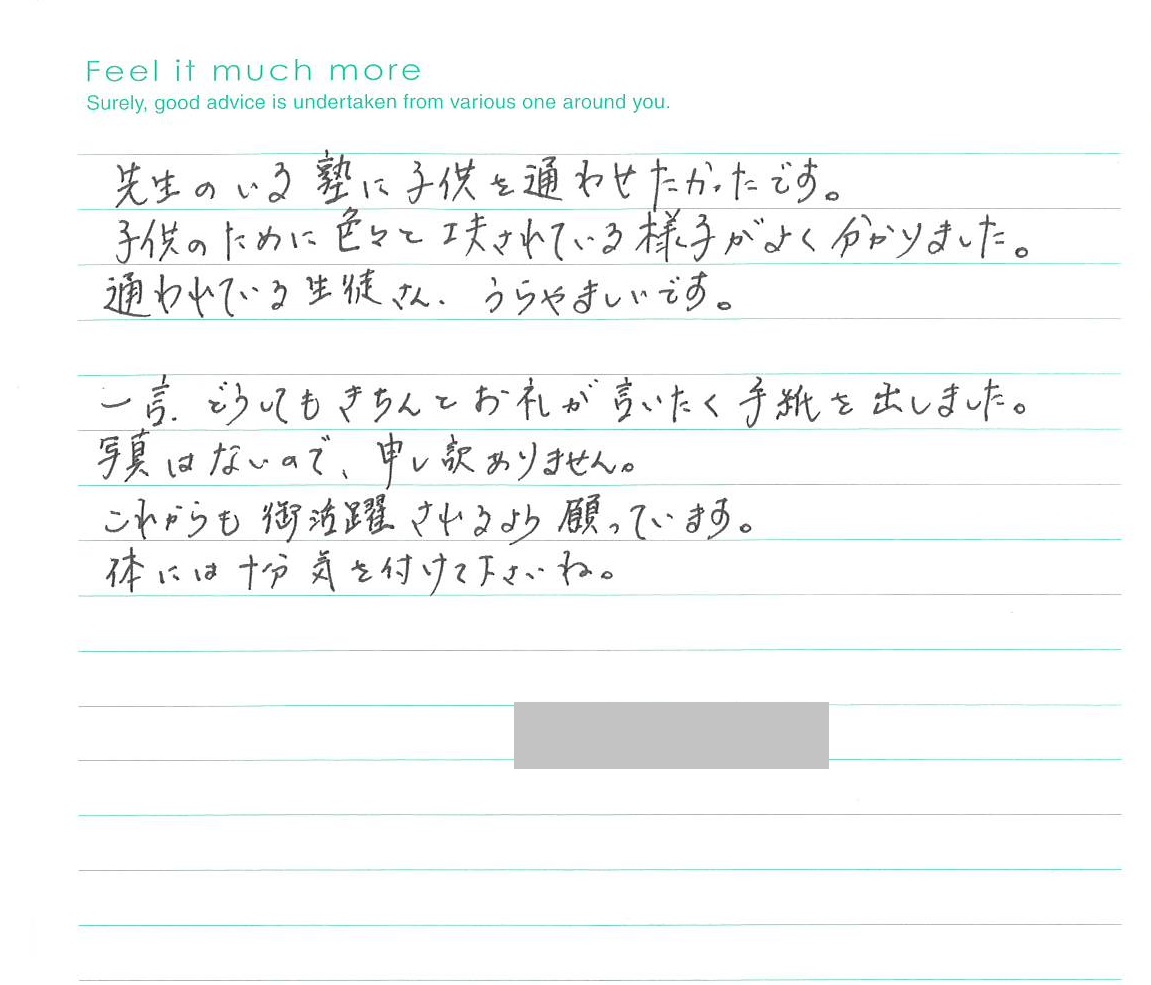 Feel it much more
Surely, good advice is undertaken from various one around you.
先生のいる塾に子供を通わせたかったです。
子供のために色々と工夫されている様子がよく分かりました。
通われている生徒さん、うらやましいです。
一言、どうしてもきちんとお礼が言いたく手紙を出しました。
写真はないので、申し訳ありません。
これからも御活躍されるよう願っています。
体には十分気を付けて下さいね。